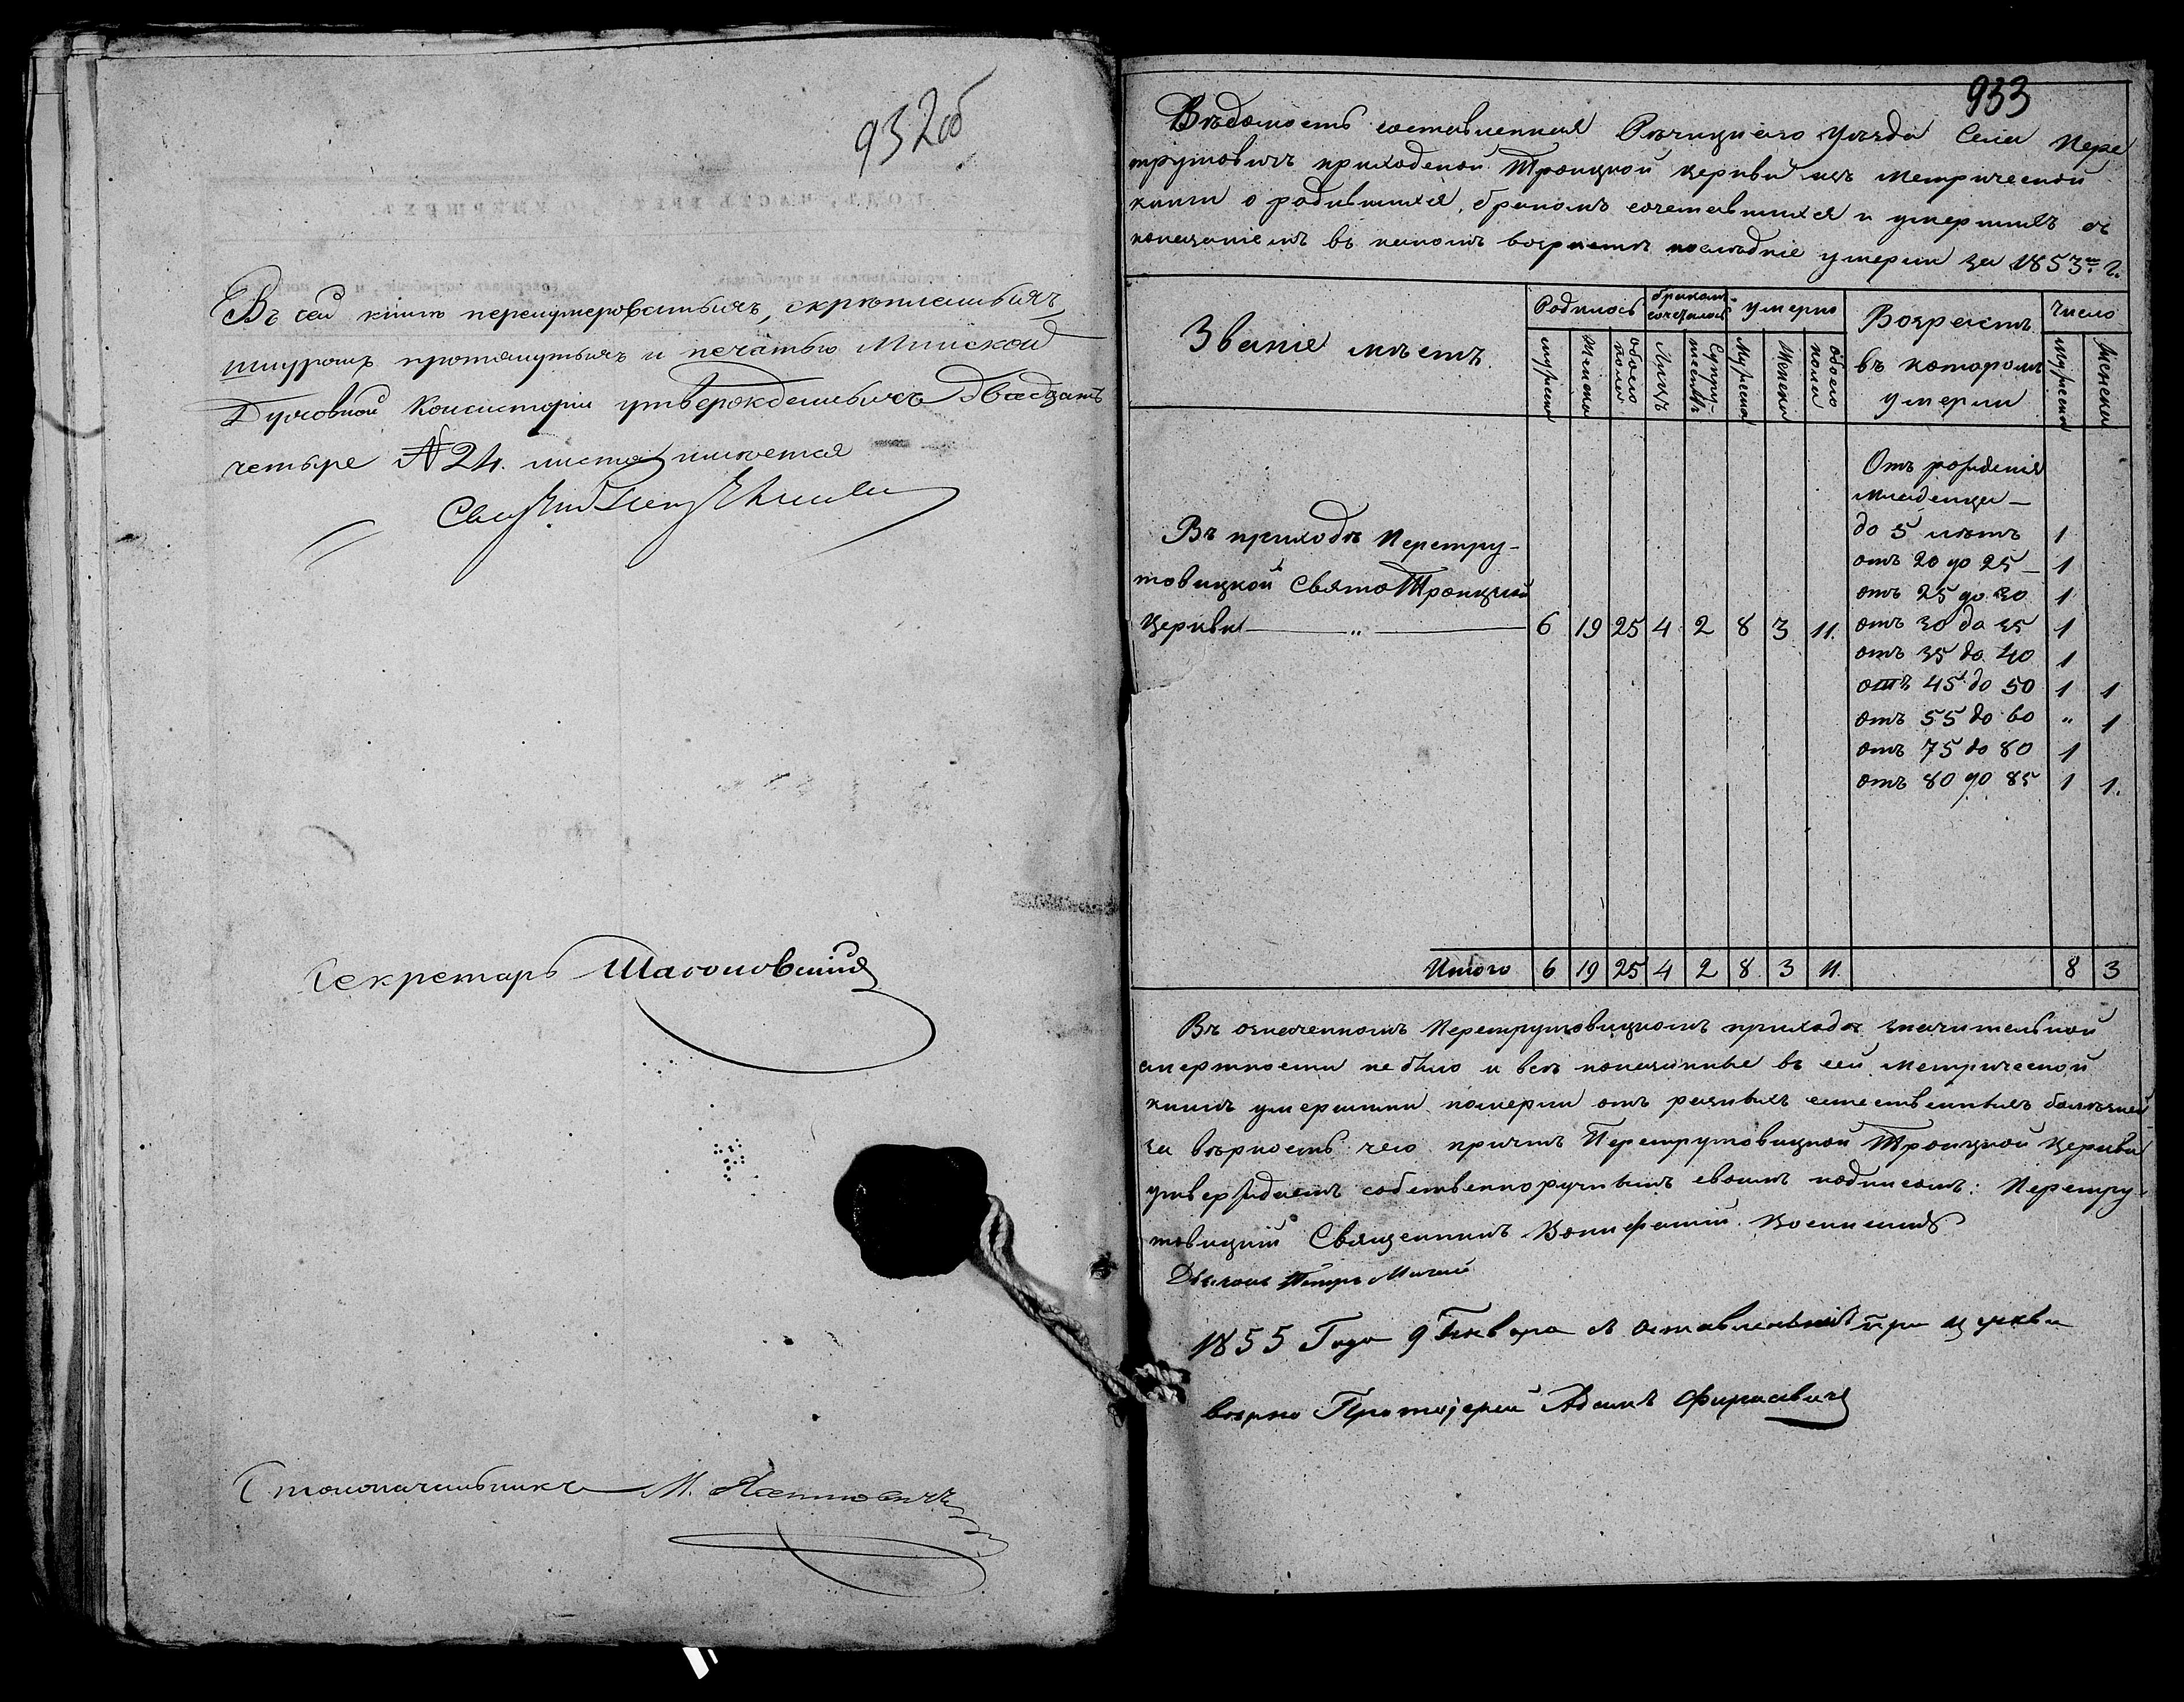 932об
Въ сей книгѣ перенумерованныхъ, скрѣпленныхъ,
шнуромъ протянутыхъ и печатью Минской
Духовной Консисторіи утвержденныхъ двадцать
четыре №24. листа имѣется
Секретарь
Столоначальникъ М.
933
Вѣдомость составленная Рѣчицкаго уѣзда Села Пере
трутовичъ приходской Троицкой церкви изъ метрической
книги о родившихся, бракомъ сочетавшихся и умершихъ съ
показаніемъ въ какомъ возрастѣ послѣдніе умерли за 1853й г.
Званіе мѣстъ. Родилось бракомъ сочеталось умерло Возрастъ въ которомъ умерли Число
мужеска Женска обоего пола Лицъ Супружествъ Мужеска Женска обоего пола Мужеска Женска
Отъ рожденія
младенца —
до 5 лѣтъ 1
отъ 20 до 25 — 1
отъ 25 до 30 1
Въ приходѣ Перетру-
товицкой Свято Троицкой
Церкви — „ — 6 19 25 4 2 8 3 11. отъ 30 до 35 1
отъ 35 до 40 1
отъ 45 до 50 1 1
отъ 55 до 60 „ 1
отъ 75 до 80 1
отъ 80 до 85 1 1.
Итого 6 19 25 4 2 8 3 11. 8 3
Въ означенномъ Перетрутовицкомъ приходѣ значительной
смертности не было и всѣ показанные въ сей метрической
книгѣ умершими померли отъ разныхъ естественныхъ болѣзней
за вѣрность чего причтъ Перетрутовицкой Троицкой Церкви
утверждаетъ собственноручнымъ своимъ подписомъ: Перетру-
товицкій Священникъ Вонифатій
Петръ
1855 Года 9 Января съ оставленной при церкви
вѣрно Протоіерей Адамъ